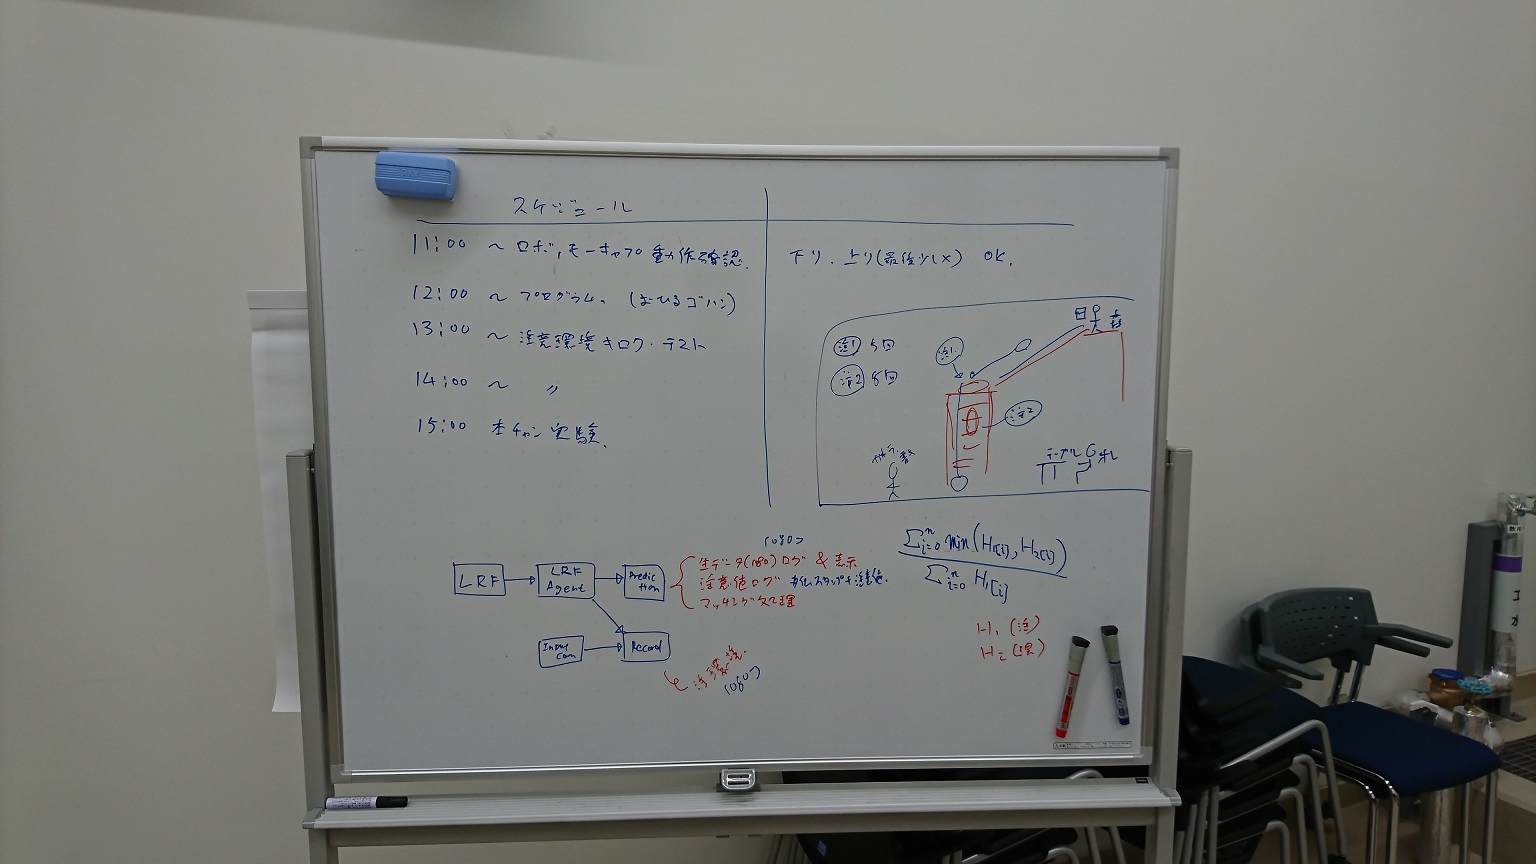 スケジュール
11:00 ～ ロボ,モーキャプ動作確認.
12:00 ～ プログラム。(おひるゴハン)
13:00 ～ 注意環境キロク・テスト
14:00 ～ 〃
15:00 本チャン実験.
下り.上り(最後少し×) OK.
注1 5回
注2 8回
注1.
注2
テーブル
LRF
LRF Agent
Predic tion
Record
(1080)
生データ(1080)ログ & 表示
注意値ログ タイムスタンプ+注意値.
マッチング処理
(1080)
∑ⁿᵢ₌₀ min(H₁[i], H₂[i])
∑ⁿᵢ₌₀ H₁[i]
H₁ (注)
H₂ (現)